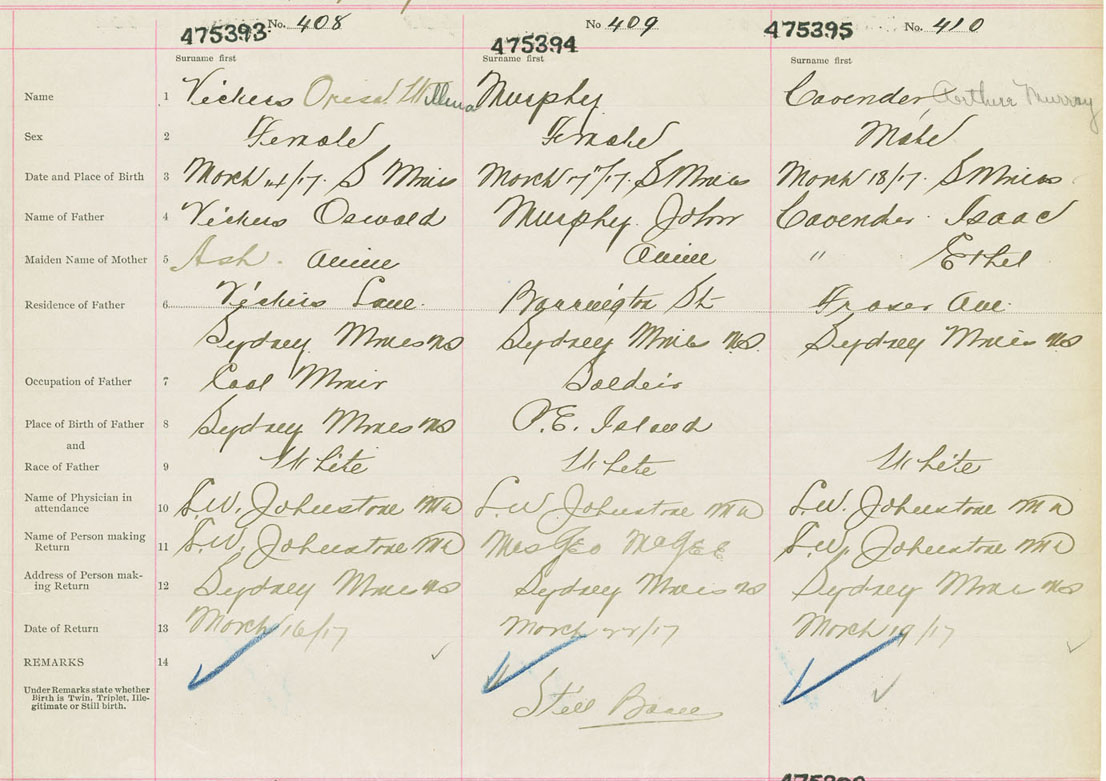 475393 No. 408
475394 No 409
475395 No. 410
Surname first Surname first Surname first
Name 1 Vickers Murphy Cavender Arthur Murray
Sex 2 Female Female Male
Date and Place of Birth 3 March /17. S Mines March 17/17. S Mines March 18/17. S Mines
Name of Father 4 Vickers Oswald Murphy John Cavender Isaac
Maiden Name of Mother 5 Ash. Annie Annie " Ethel
Residence of Father 6 Vickers Lane. Barrington St Fraser Ave.
Sydney Mines NS Sydney Mines NS. Sydney Mines NS
Occupation of Father 7 Coal Miner Soldier
Place of Birth of Father 8 Sydney Mines NS P.E. Island
and
Race of Father 9 White White White
Name of Physician in
attendance 10 L.W. Johnstone MD L.W Johnstone MD L.W. Johnstone MD
Name of Person making
Return 11 L.W. Johnstone MD Mrs Geo McGee L.W. Johnstone MD
Address of Person mak-
ing Return 12 Sydney Mines NS Sydney Mines NS Sydney Mines NS
Date of Return 13 March 16/17 March 22/17 March 19/17
REMARKS 14
Under Remarks state whether
Birth is Twin, Triplet, Ille-
gitimate or Still birth.
Still Born